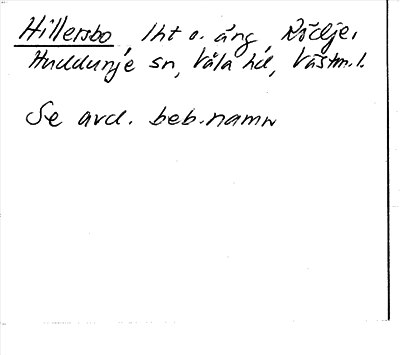 Hillersbo, lht o. äng, Rödje,
Huddunje sn, Våla hd, Västm. l.
Se avd. beb.namn